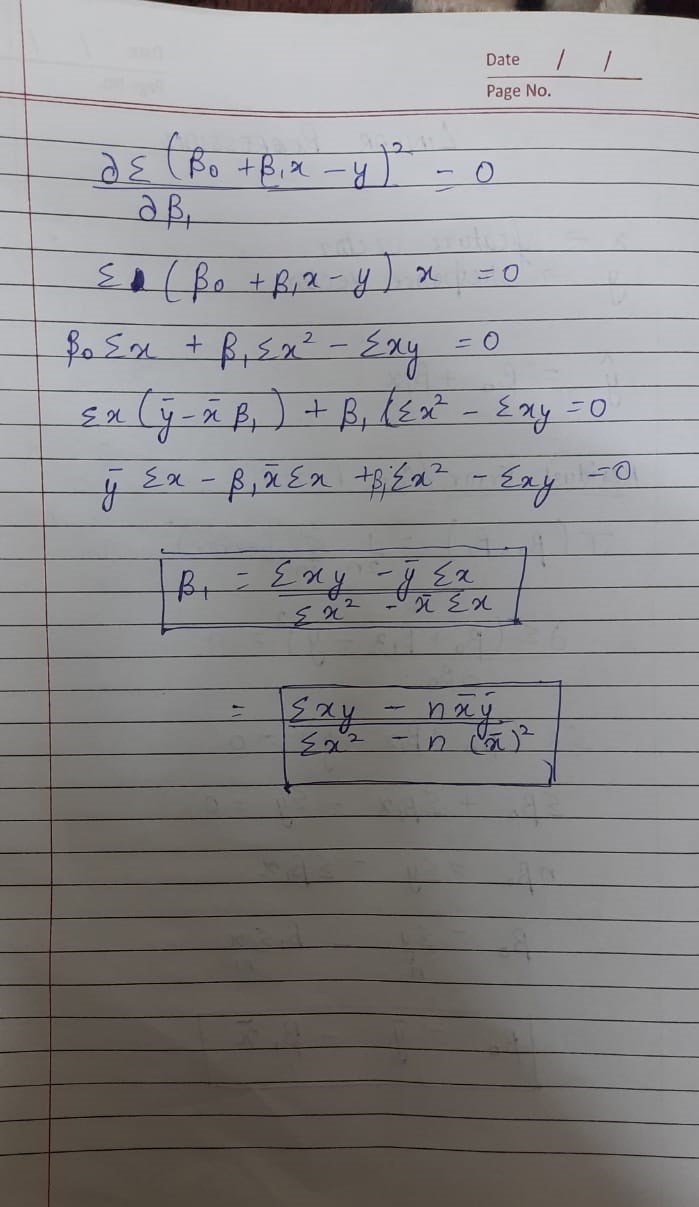 Date / /
Page No.
∂Σ(β₀ + β₁x - y)² = 0
∂β₁
Σ (β₀ + β₁x - y) x = 0
β₀Σx + β₁Σx² - Σxy = 0
Σx(ȳ - x̄ β₁) + β₁(Σx² - Σxy = 0
ȳ Σx - β₁x̄Σx + β₁Σx² - Σxy = 0
β₁ = Σxy - ȳ Σx
Σx² - x̄ Σx
= Σxy - n x̄ȳ
Σx² - n (x̄)²